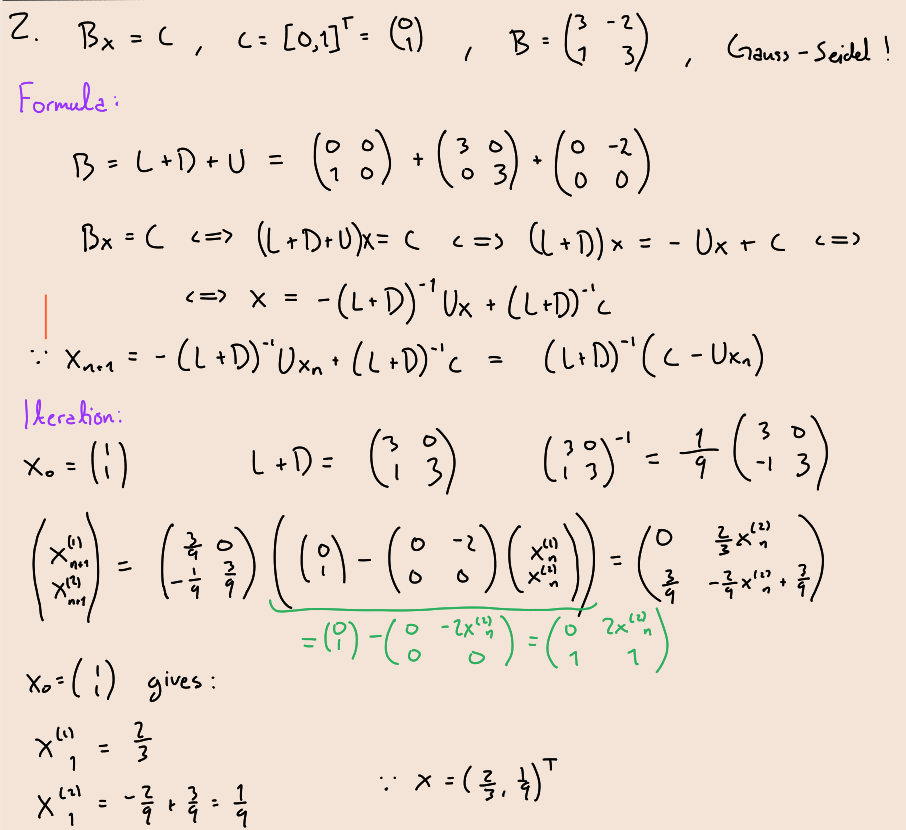 2. Bx = C , C = [0,1]^T = (0 1) , B = (3 -2 1 3) , Gauss-Seidel !
Formula:
B = L + D + U = (0 0 1 0) + (3 0 0 3) + (0 -2 0 0)
Bx = C <=> (L+D+U)x = C <=> (L+D)x = -Ux + C <=>
<=> x = -(L+D)^-1 Ux + (L+D)^-1 c
∵ x_n+1 = -(L+D)^-1 Ux_n + (L+D)^-1 c = (L+D)^-1 (C - Ux_n)
Iteration:
x_0 = (1 1) L+D = (3 0 1 3) (3 0 1 3)^-1 = 1/9 (3 0 -1 3)
(x^(1)_n+1 x^(2)_n+1) = (3/9 0 -1/9 3/9) ((0 1) - (0 -2 0 0) (x^(1)_n x^(2)_n)) = (0 2/3 x^(2)_n 3/9 -2/9 x^(2)_n + 3/9)
= (0 1) - (0 -2x^(2)_n 0 0) = (0 2x^(2)_n 1 1)
x_0 = (1 1) gives:
x^(1)_1 = 2/3
x^(2)_1 = -2/9 + 3/9 = 1/9 ∵ x = (2/3, 1/9)^T